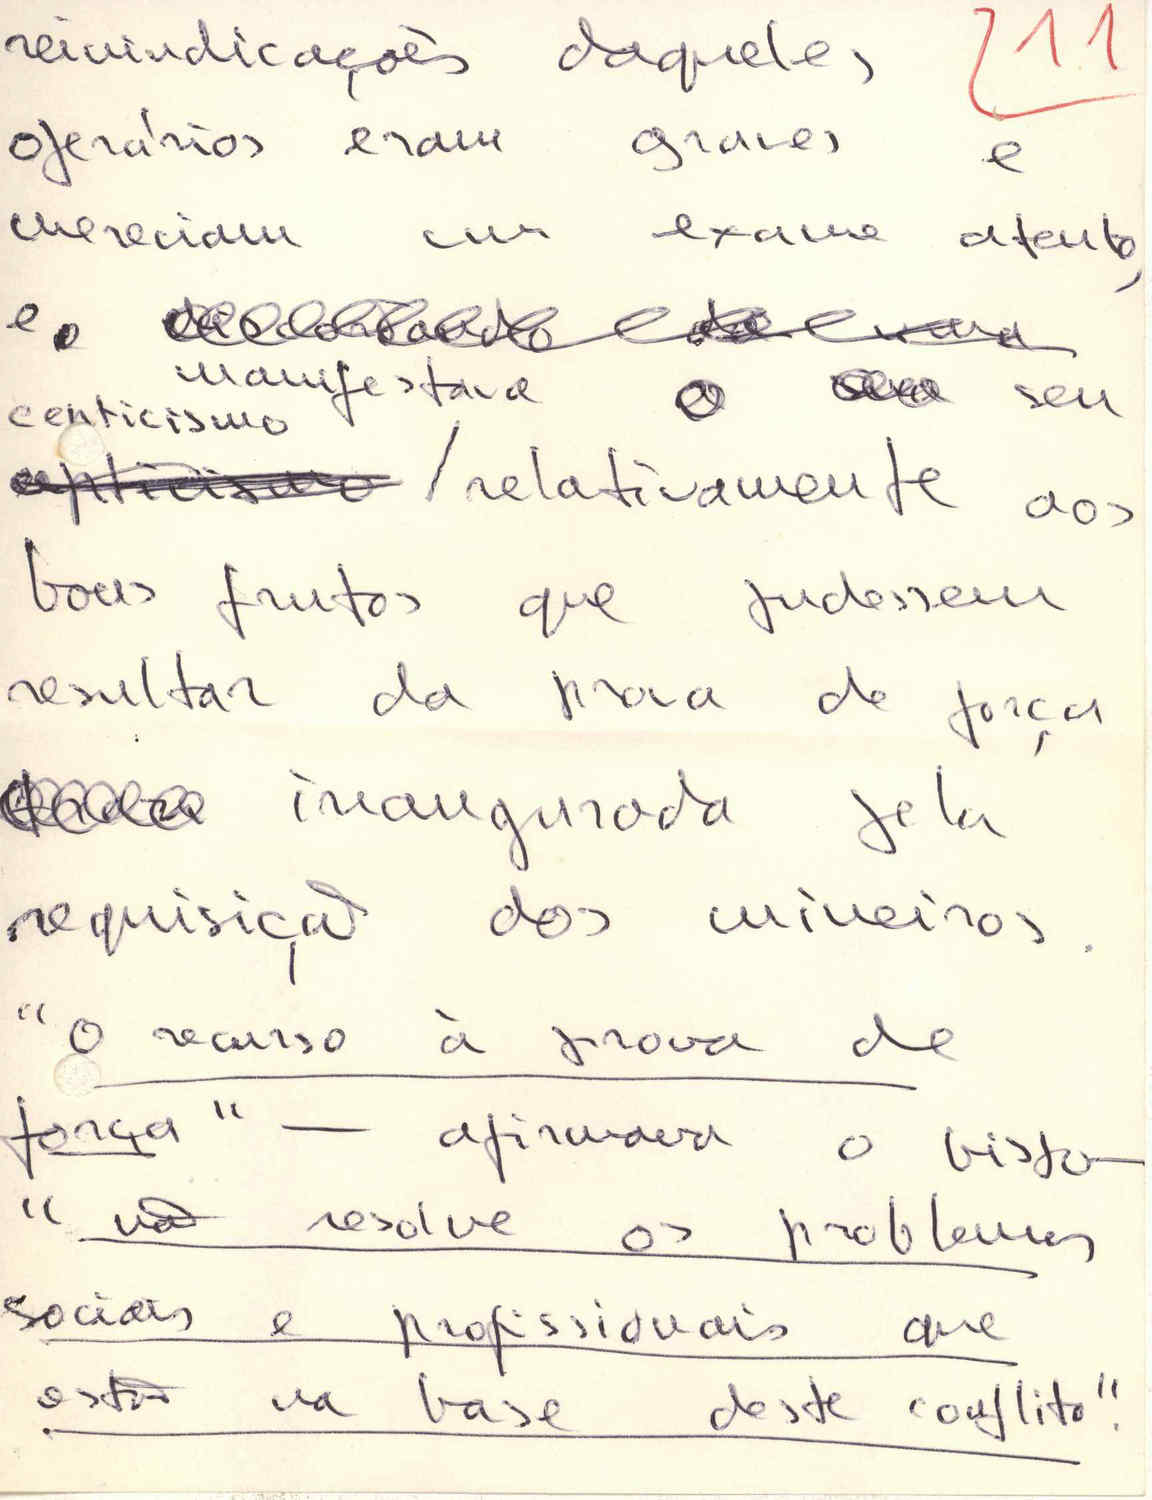 reivindicações daqueles 11
operários eram graves e
mereciam um exame atento,
e o
manifestava o seu
cepticismo
cepticismo / relativamente aos
bons frutos que pudessem
resultar da prova de força
inaugurada pela
requisição dos mineiros.
"O recurso à prova de
força" — afirmava o bispo —
"não resolve os problemas
sociais e profissionais que
estão na base deste conflito".